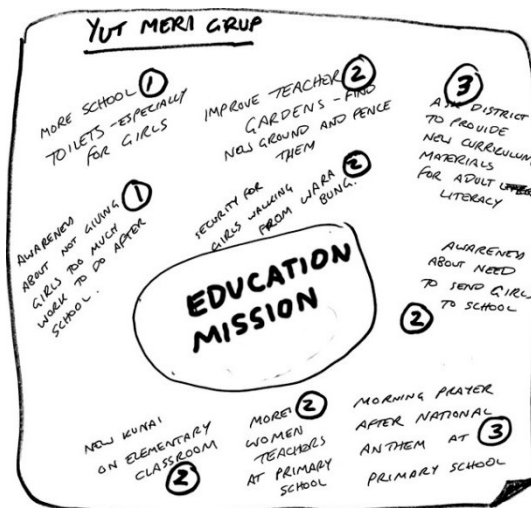 YUT MERI GRUP
MORE SCHOOL 1
TOILETS - ESPECIALLY
FOR GIRLS
IMPROVE TEACHER 2
GARDENS - FIND
NEW GROUND AND FENCE
THEM
3
ASK DISTRICT
TO PROVIDE
NEW CURRICULUM
MATERIALS
FOR ADULT
LITERACY
AWARENESS 1
ABOUT NOT GIVING
GIRLS TOO MUCH
WORK TO DO AFTER
SCHOOL.
SECURITY FOR 2
GIRLS WALKING
FROM WARA
BUNG.
EDUCATION
MISSION
AWARENESS
ABOUT NEED
TO SEND GIRLS
TO SCHOOL
2
NEW KUNAI
ON ELEMENTARY
CLASSROOM
2
MORE 2
WOMEN
TEACHERS
AT PRIMARY
SCHOOL
MORNING PRAYER
AFTER NATIONAL
ANTHEM AT 3
PRIMARY SCHOOL